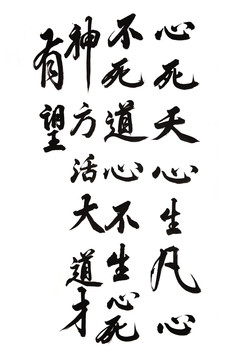 心死天心生凡心
不死道心不生心死
神方活大道才
有望